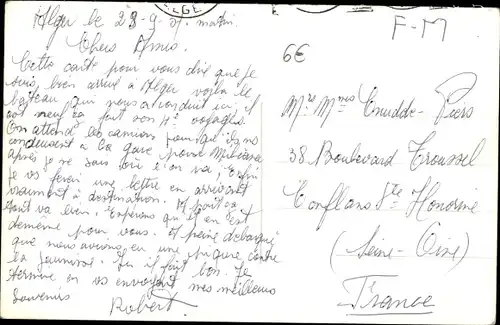 Alger le 23-9-57. matin.
Chers Amis.
Cette carte pour vous dire que je
suis bien arrivé à Alger voilà le
bateau qui nous a conduit ici, il
est neuf ça fait son 4e voyages.
On attend les camions pour qu'ils nous
conduisent à la gare pour
après je ne sais où l'on va; Enfin
je vs ferai une lettre en arrivant
vraiment à destination.
tout va bien. Espérons qu'il en est
de même pour vous. A peine débarqué
que nous avions eu une piqure contre
la jaunisse. Ici il fait bon. Je
termine en vs envoyant mes meilleurs
souvenirs
Robert.
ALGER
F-M
6€
Mr Mmes Cnudde-Piers
38 Boulevard Troussel
Conflans Ste Honorine
(Seine-Oise)
France